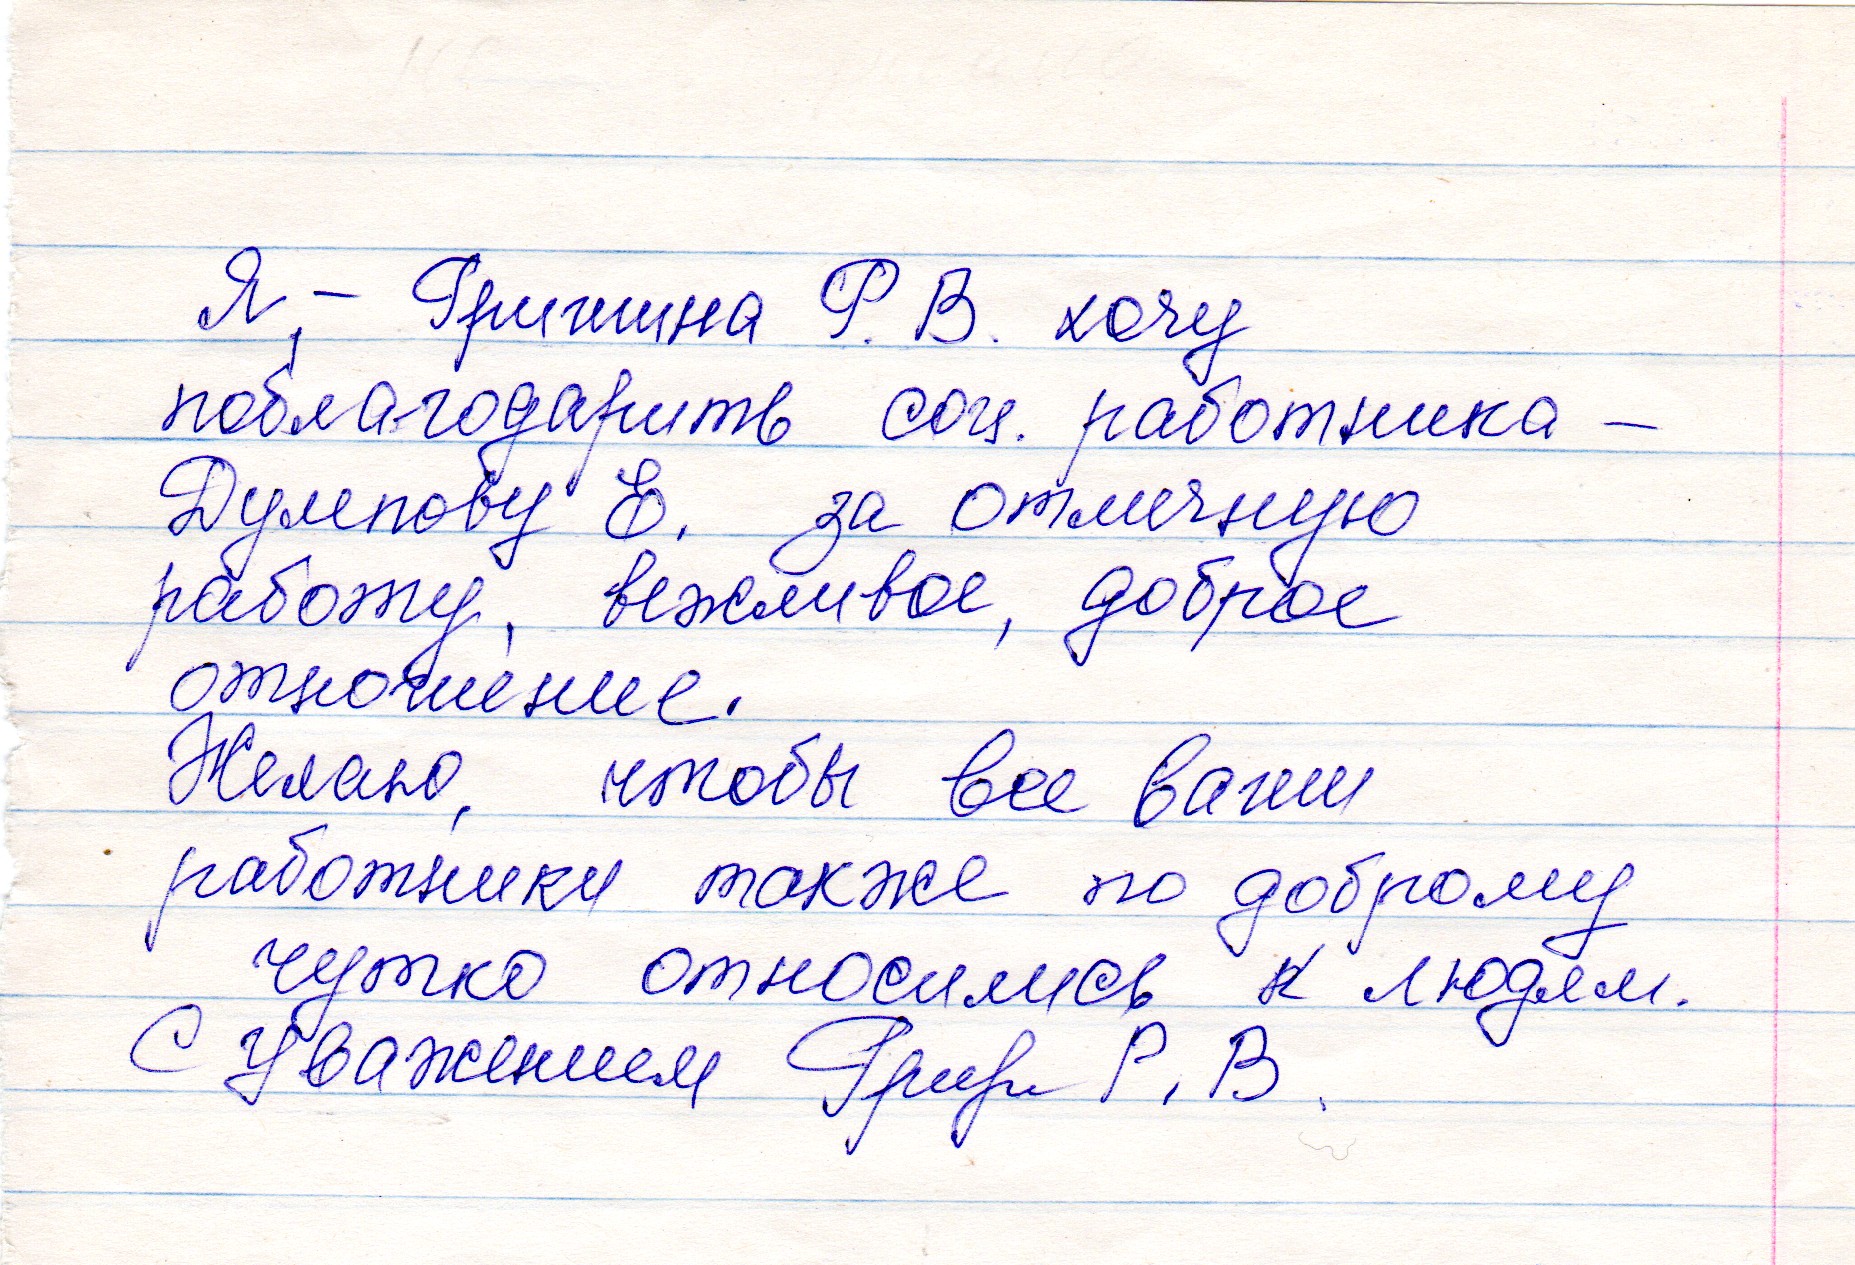 Я, - Гришина Р. В. хочу
поблагодарить соц. работника -
Дулепову Е. за отличную
работу, вежливое, доброе
отношение.
Желаю, чтобы все ваши
работники также по доброму
чутко относились к людям.
С уважением Р. В.